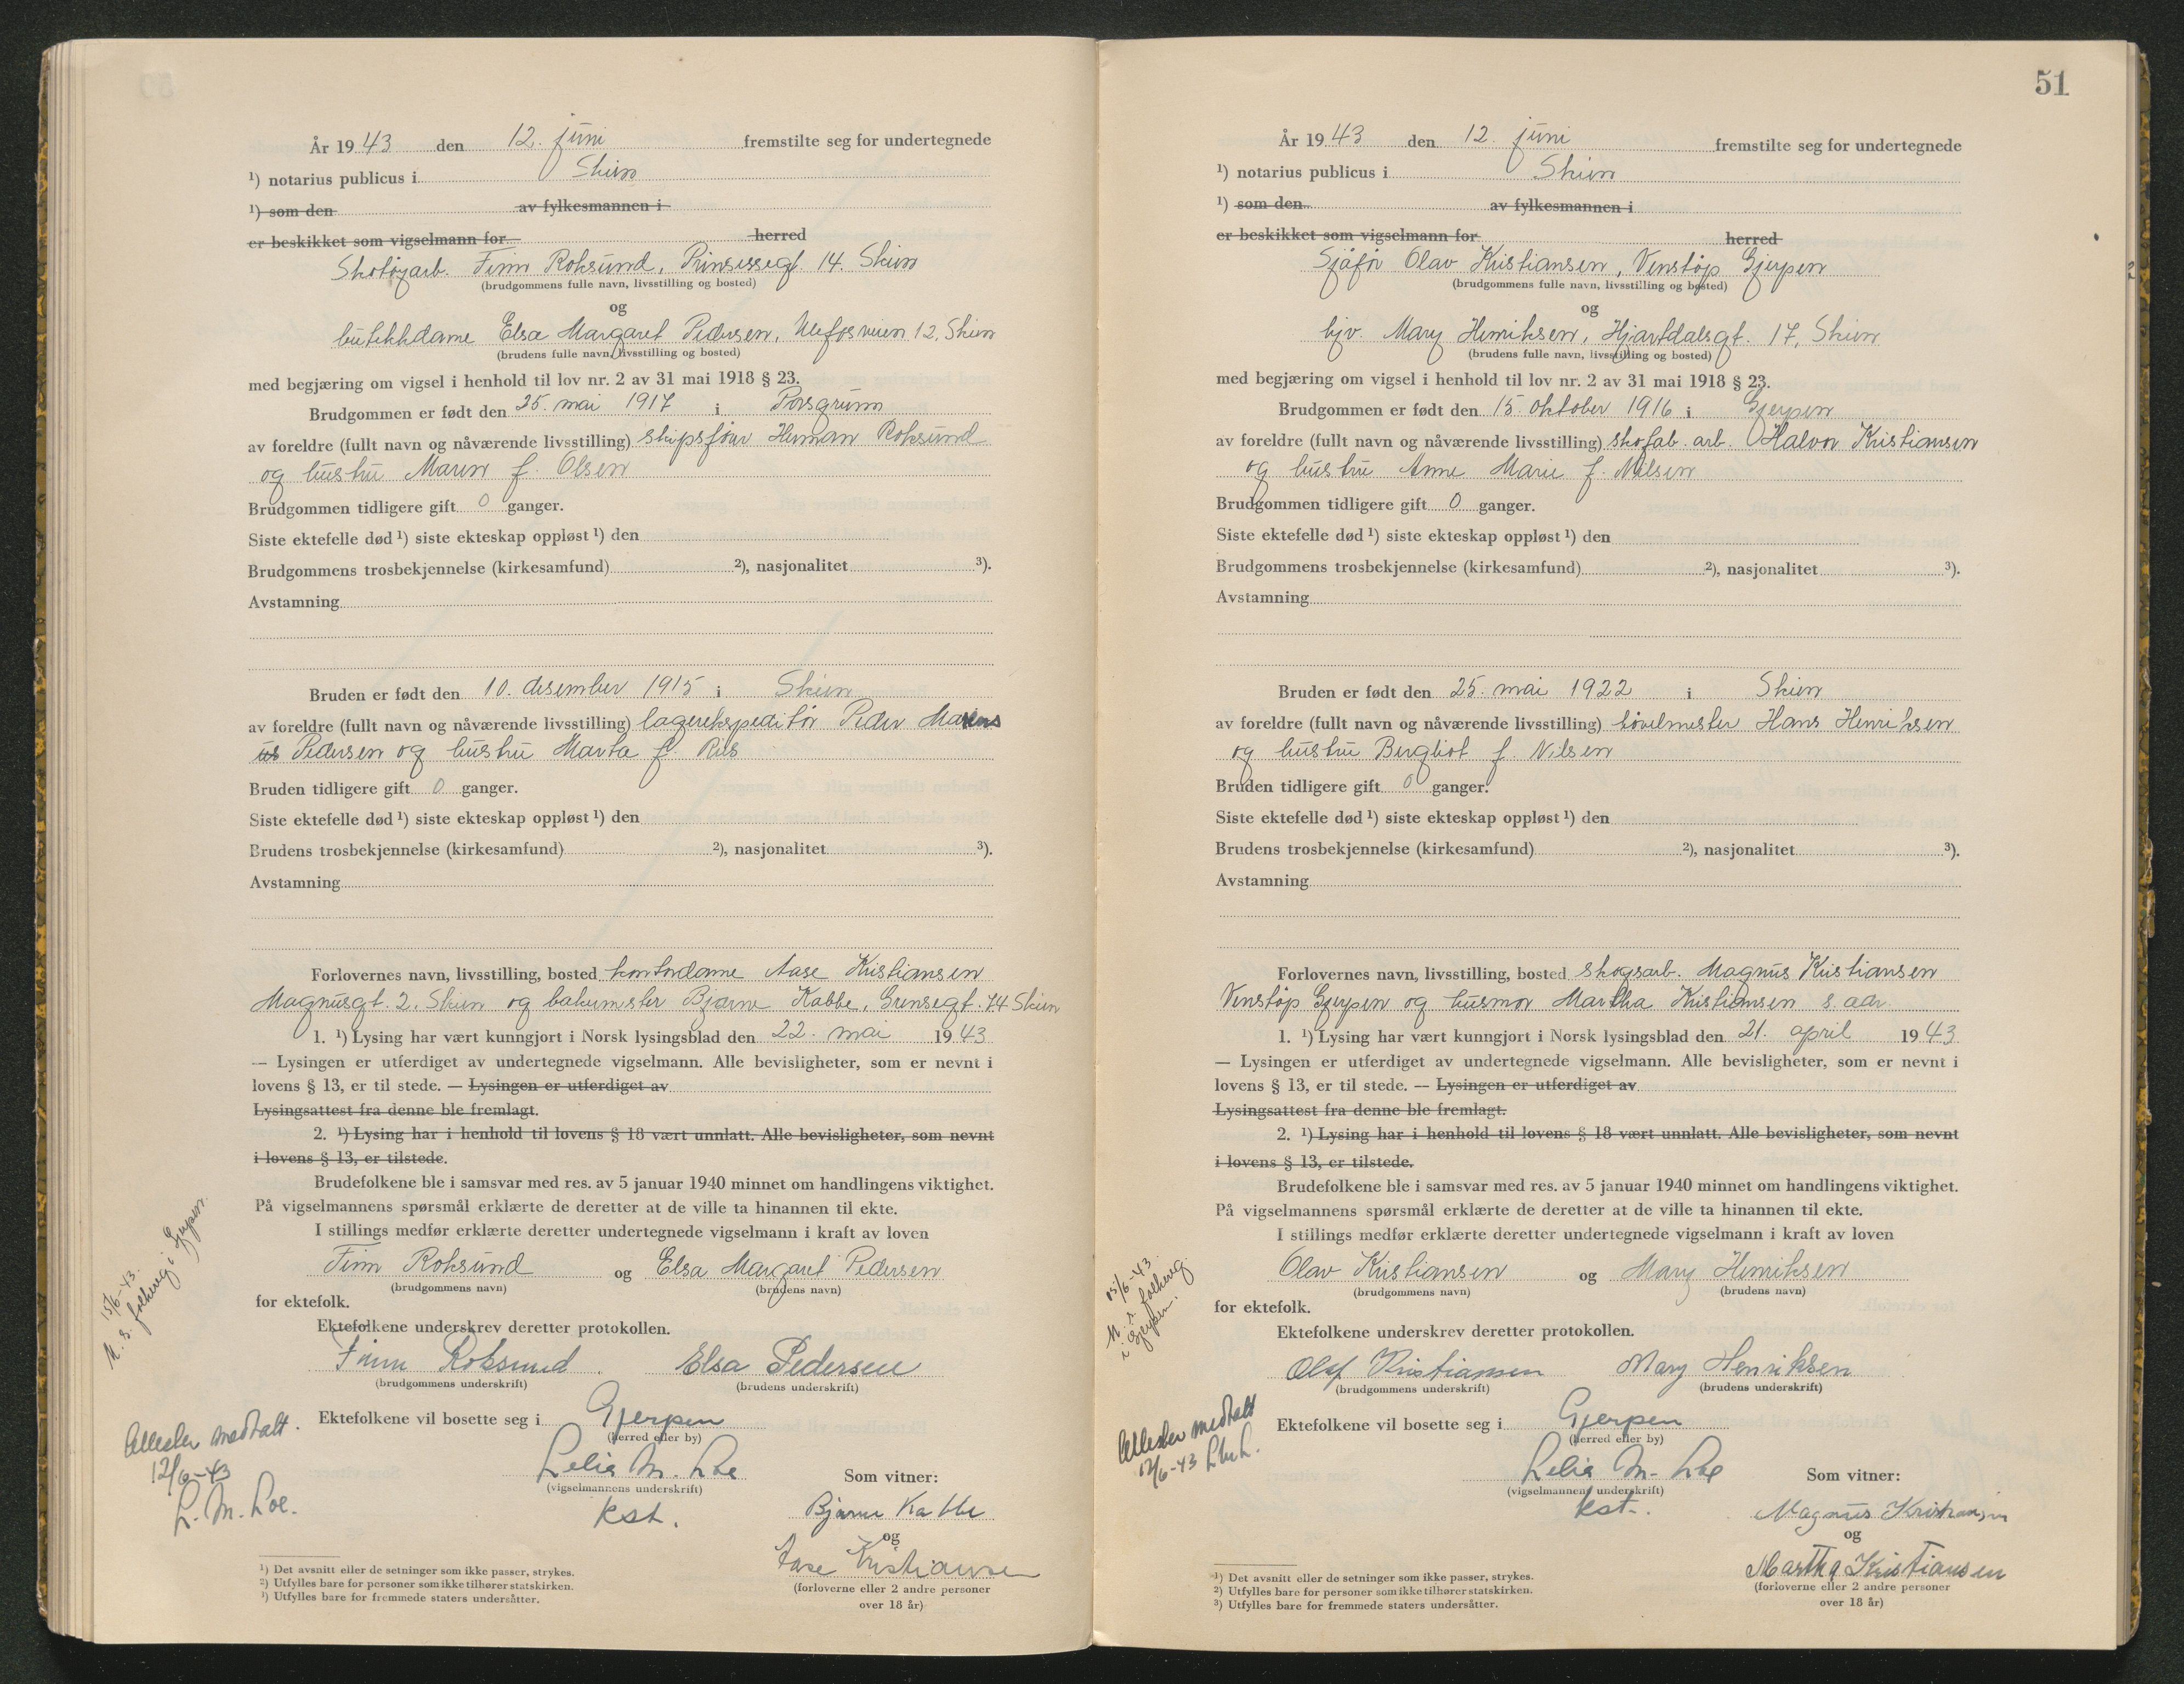 År 1943 den 12. juni fremstilte seg for undertegnede
¹) notarius publicus i Skien
¹) som den av fylkesmannen i
er beskikket som vigselmann for herred
Skotøyarb. Finn Roksund, Prinsessegt. 14. Skien
(brudgommens fulle navn, livsstilling og bosted)
og
butikkdame Elsa Margaret Pedersen, Ulefosveien 12, Skien
(brudens fulle navn, livsstilling og bosted)
med begjæring om vigsel i henhold til lov nr. 2 av 31 mai 1918 § 23.
Brudgommen er født den 25. mai 1917 i Porsgrunn
av foreldre (fullt navn og nåværende livsstilling) skipsfører Herman Roksund
og hustru Maren f. Olsen
Brudgommen tidligere gift 0 ganger.
Siste ektefelle død ¹) siste ekteskap oppløst ¹) den
Brudgommens trosbekjennelse (kirkesamfund) ²), nasjonalitet ³).
Avstamning
Bruden er født den 10. desember 1915 i Skien
av foreldre (fullt navn og nåværende livsstilling) lagerekspeditør Peder
Pedersen og hustru Marta f. Riis
Bruden tidligere gift 0 ganger.
Siste ektefelle død ¹) siste ekteskap oppløst ¹) den
Brudens trosbekjennelse (kirkesamfund) ²), nasjonalitet ³).
Avstamning
Forlovernes navn, livsstilling, bosted kontordame Aase Kristiansen
Magnusgt. 2, Skien og bakemester Bjarne Kabbe, Grensegt. 74 Skien
1. ¹) Lysing har vært kunngjort i Norsk lysingsblad den 22. mai 1943
— Lysingen er utferdiget av undertegnede vigselmann. Alle bevisligheter, som er nevnt i
lovens § 13, er til stede. — Lysingen er utferdiget av
Lysingsattest fra denne ble fremlagt.
2. ¹) Lysing har i henhold til lovens § 18 vært unnlatt. Alle bevisligheter, som nevnt
i lovens § 13, er tilstede.
Brudefolkene ble i samsvar med res. av 5 januar 1940 minnet om handlingens viktighet.
På vigselmannens spørsmål erklærte de deretter at de ville ta hinannen til ekte.
I stillings medfør erklærte deretter undertegnede vigselmann i kraft av loven
Finn Roksund og Elsa Margaret Pedersen
(brudgommens navn) (brudens navn)
for ektefolk.
Ektefolkene underskrev deretter protokollen.
Finn Roksund. Elsa Pedersen
(brudgommens underskrift) (brudens underskrift)
Ektefolkene vil bosette seg i Gjerpen
(herred eller by)
Lelia M. Loe
(vigselmannens underskrift)
kst.
Som vitner:
Bjarne Kabbe
og
Aase Kristiansen
(forloverne eller 2 andre personer
over 18 år)
15/6-43.
M. s. folkereg i Gjerpen.
Attester medtatt.
12/6-43
L. M. Loe.
¹) Det avsnitt eller de setninger som ikke passer, strykes.
²) Utfylles bare for personer som ikke tilhører statskirken.
³) Utfylles bare for fremmede staters undersåtter.
51
År 1943 den 12. juni fremstilte seg for undertegnede
¹) notarius publicus i Skien
¹) som den av fylkesmannen i
er beskikket som vigselmann for herred
Sjåfør Olav Kristiansen, Venstøp Gjerpen
(brudgommens fulle navn, livsstilling og bosted)
og
hjv. Mary Henriksen, Hjartdalsgt. 17, Skien
(brudens fulle navn, livsstilling og bosted)
med begjæring om vigsel i henhold til lov nr. 2 av 31 mai 1918 § 23.
Brudgommen er født den 15. oktober 1916 i Gjerpen
av foreldre (fullt navn og nåværende livsstilling) skofab. arb. Halvor Kristiansen
og hustru Anne Marie f. Nilsen
Brudgommen tidligere gift 0 ganger.
Siste ektefelle død ¹) siste ekteskap oppløst ¹) den
Brudgommens trosbekjennelse (kirkesamfund) ²), nasjonalitet ³).
Avstamning
Bruden er født den 25. mai 1922 i Skien
av foreldre (fullt navn og nåværende livsstilling) høvelmester Hans Henriksen
og hustru Bergliot f. Nilsen
Bruden tidligere gift 0 ganger.
Siste ektefelle død ¹) siste ekteskap oppløst ¹) den
Brudens trosbekjennelse (kirkesamfund) ²), nasjonalitet ³).
Avstamning
Forlovernes navn, livsstilling, bosted skogsarb. Magnus Kristiansen
Venstøp Gjerpen og husmor Martha Kristiansen s. adr.
1. ¹) Lysing har vært kunngjort i Norsk lysingsblad den 21. april 1943
— Lysingen er utferdiget av undertegnede vigselmann. Alle bevisligheter, som er nevnt i
lovens § 13, er til stede. — Lysingen er utferdiget av
Lysingsattest fra denne ble fremlagt.
2. ¹) Lysing har i henhold til lovens § 18 vært unnlatt. Alle bevisligheter, som nevnt
i lovens § 13, er tilstede.
Brudefolkene ble i samsvar med res. av 5 januar 1940 minnet om handlingens viktighet.
På vigselmannens spørsmål erklærte de deretter at de ville ta hinannen til ekte.
I stillings medfør erklærte deretter undertegnede vigselmann i kraft av loven
Olav Kristiansen og Mary Henriksen
(brudgommens navn) (brudens navn)
for ektefolk.
Ektefolkene underskrev deretter protokollen.
Olaf Kristiansen Mary Henriksen
(brudgommens underskrift) (brudens underskrift)
Ektefolkene vil bosette seg i Gjerpen
(herred eller by)
Lelia M. Loe
(vigselmannens underskrift)
kst.
Som vitner:
Magnus Kristiansen
og
Martha Kristiansen
(forloverne eller 2 andre personer
over 18 år)
15/6-43.
M. s. folkereg.
i Gjerpen.
Attester medtatt
12/6-43 LML.
¹) Det avsnitt eller de setninger som ikke passer, strykes.
²) Utfylles bare for personer som ikke tilhører statskirken.
³) Utfylles bare for fremmede staters undersåtter.